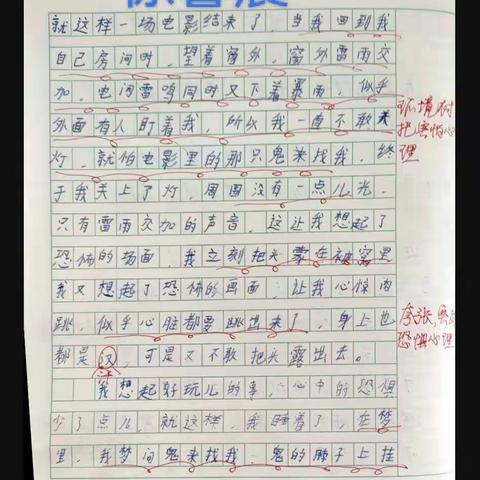 就这样一场电影结束了，当我回到我
自己房间时，望着窗外，窗外雷雨交
加，电闪雷鸣同时又下着暴雨，似乎
外面有人盯着我，所以我一直不敢关
灯，就怕电影里的那只鬼来找我，终
于我关上了灯，周围没有一点儿光，
只有雷雨交加的声音，这让我想起了
恐怖的场面，我立刻把头蒙在被窝里
我又想起了恐怖的画面，让我心惊肉
跳，似乎心脏都要跳出来了，身上也
都是汉，可是又不敢把头露出去。
我想起好玩儿的事，心中的恐惧
少了点儿，就这样，我睡着了，在梦
里，我梦间鬼来找我，鬼的脖子上挂
环境衬
把害怕心
理
夸张，
恐惧心理